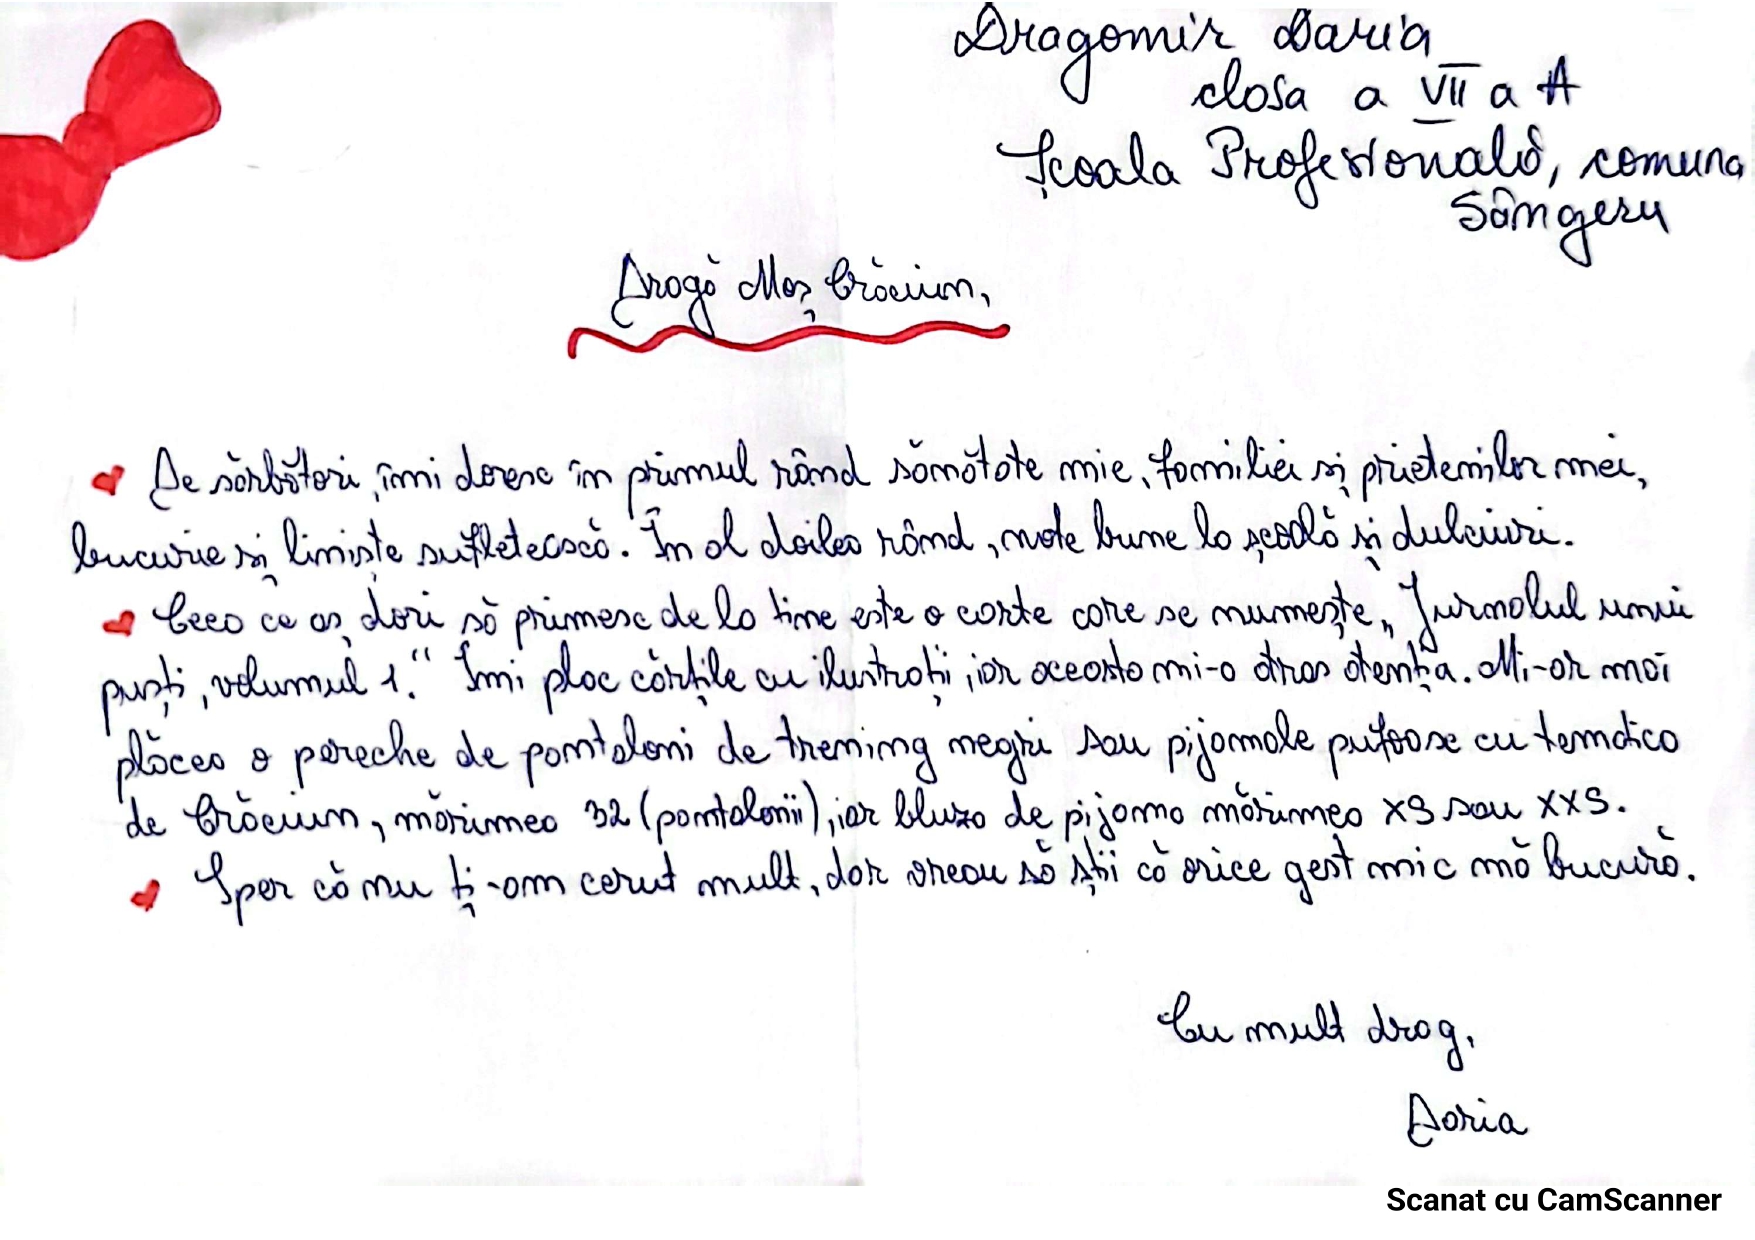 Dragomir Daria
clasa a VII a A
Școala Profesională, comuna
Sângeru
Dragă Moș Crăciun,
De sărbători, îmi doresc în primul rând sănătate mie, familiei și prietenilor mei,
bucurie și liniște sufletească. În al doilea rând, note bune la școală și dulciuri.
Ceea ce aș dori să primesc de la tine este o carte care se numește „Jurnalul unui
puști, volumul 1." Îmi plac cărțile cu ilustrații, iar aceasta mi-a atras atenția. Mi-ar mai
plăcea o pereche de pantaloni de trening negri sau pijamale pufoase cu tematica
de Crăciun, mărimea 32 (pantalonii), iar bluza de pijama mărimea XS sau XXS.
Sper că nu ți-am cerut mult, dar vreau să știi că orice gest mic mă bucură.
Cu mult drag,
Daria
Scanat cu CamScanner